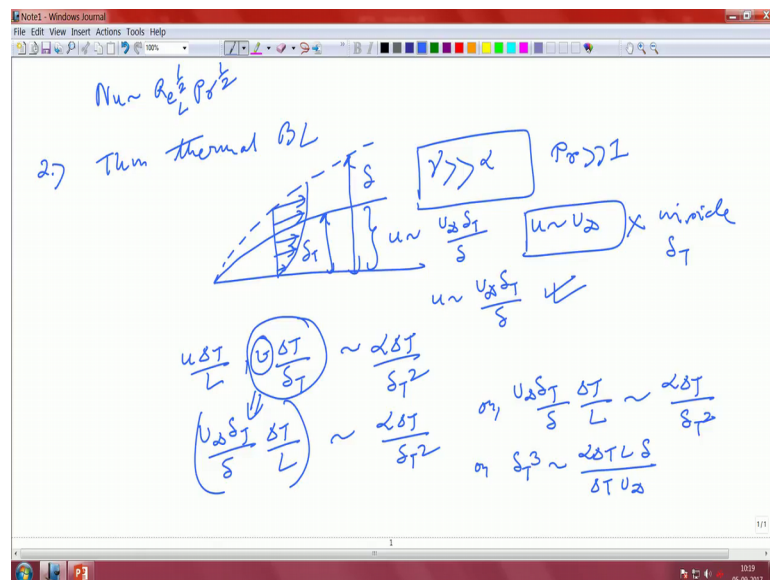 Note1 - Windows Journal
File Edit View Insert Actions Tools Help
100%
Nu ~ Re_L^{1/2} Pr^{1/2}
2.) Thin thermal BL
γ >> α
Pr >> 1
δ
δ_T
u ~ U_∞ δ_T / δ
u ~ U_∞ × inside δ_T
u ~ U_∞ δ_T / δ ✓
u ΔT / L , v ΔT / δ_T ~ α ΔT / δ_T^2
(U_∞ δ_T / δ ΔT / L) ~ α ΔT / δ_T^2
or, U_∞ δ_T / δ ΔT / L ~ α ΔT / δ_T^2
or, δ_T^3 ~ α ΔT L δ / ΔT U_∞
1/1
1
10:19